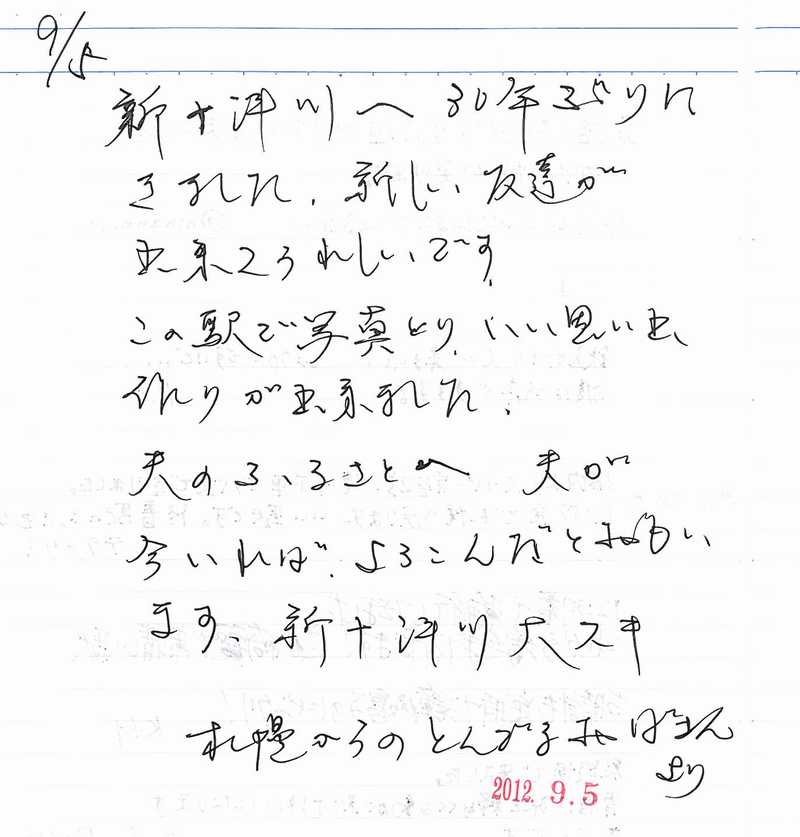 9/5
新十津川へ30年ぶりに
きました。新しい友達が
出来てうれしいです。
この駅で写真とり、いい思い出
作りが出来ました。
夫のふるさとへ 夫が
今いれば、よろこんだとおもい
ます、新十津川大スキ
札幌からのとんでるおばさん
より
2012. 9. 5